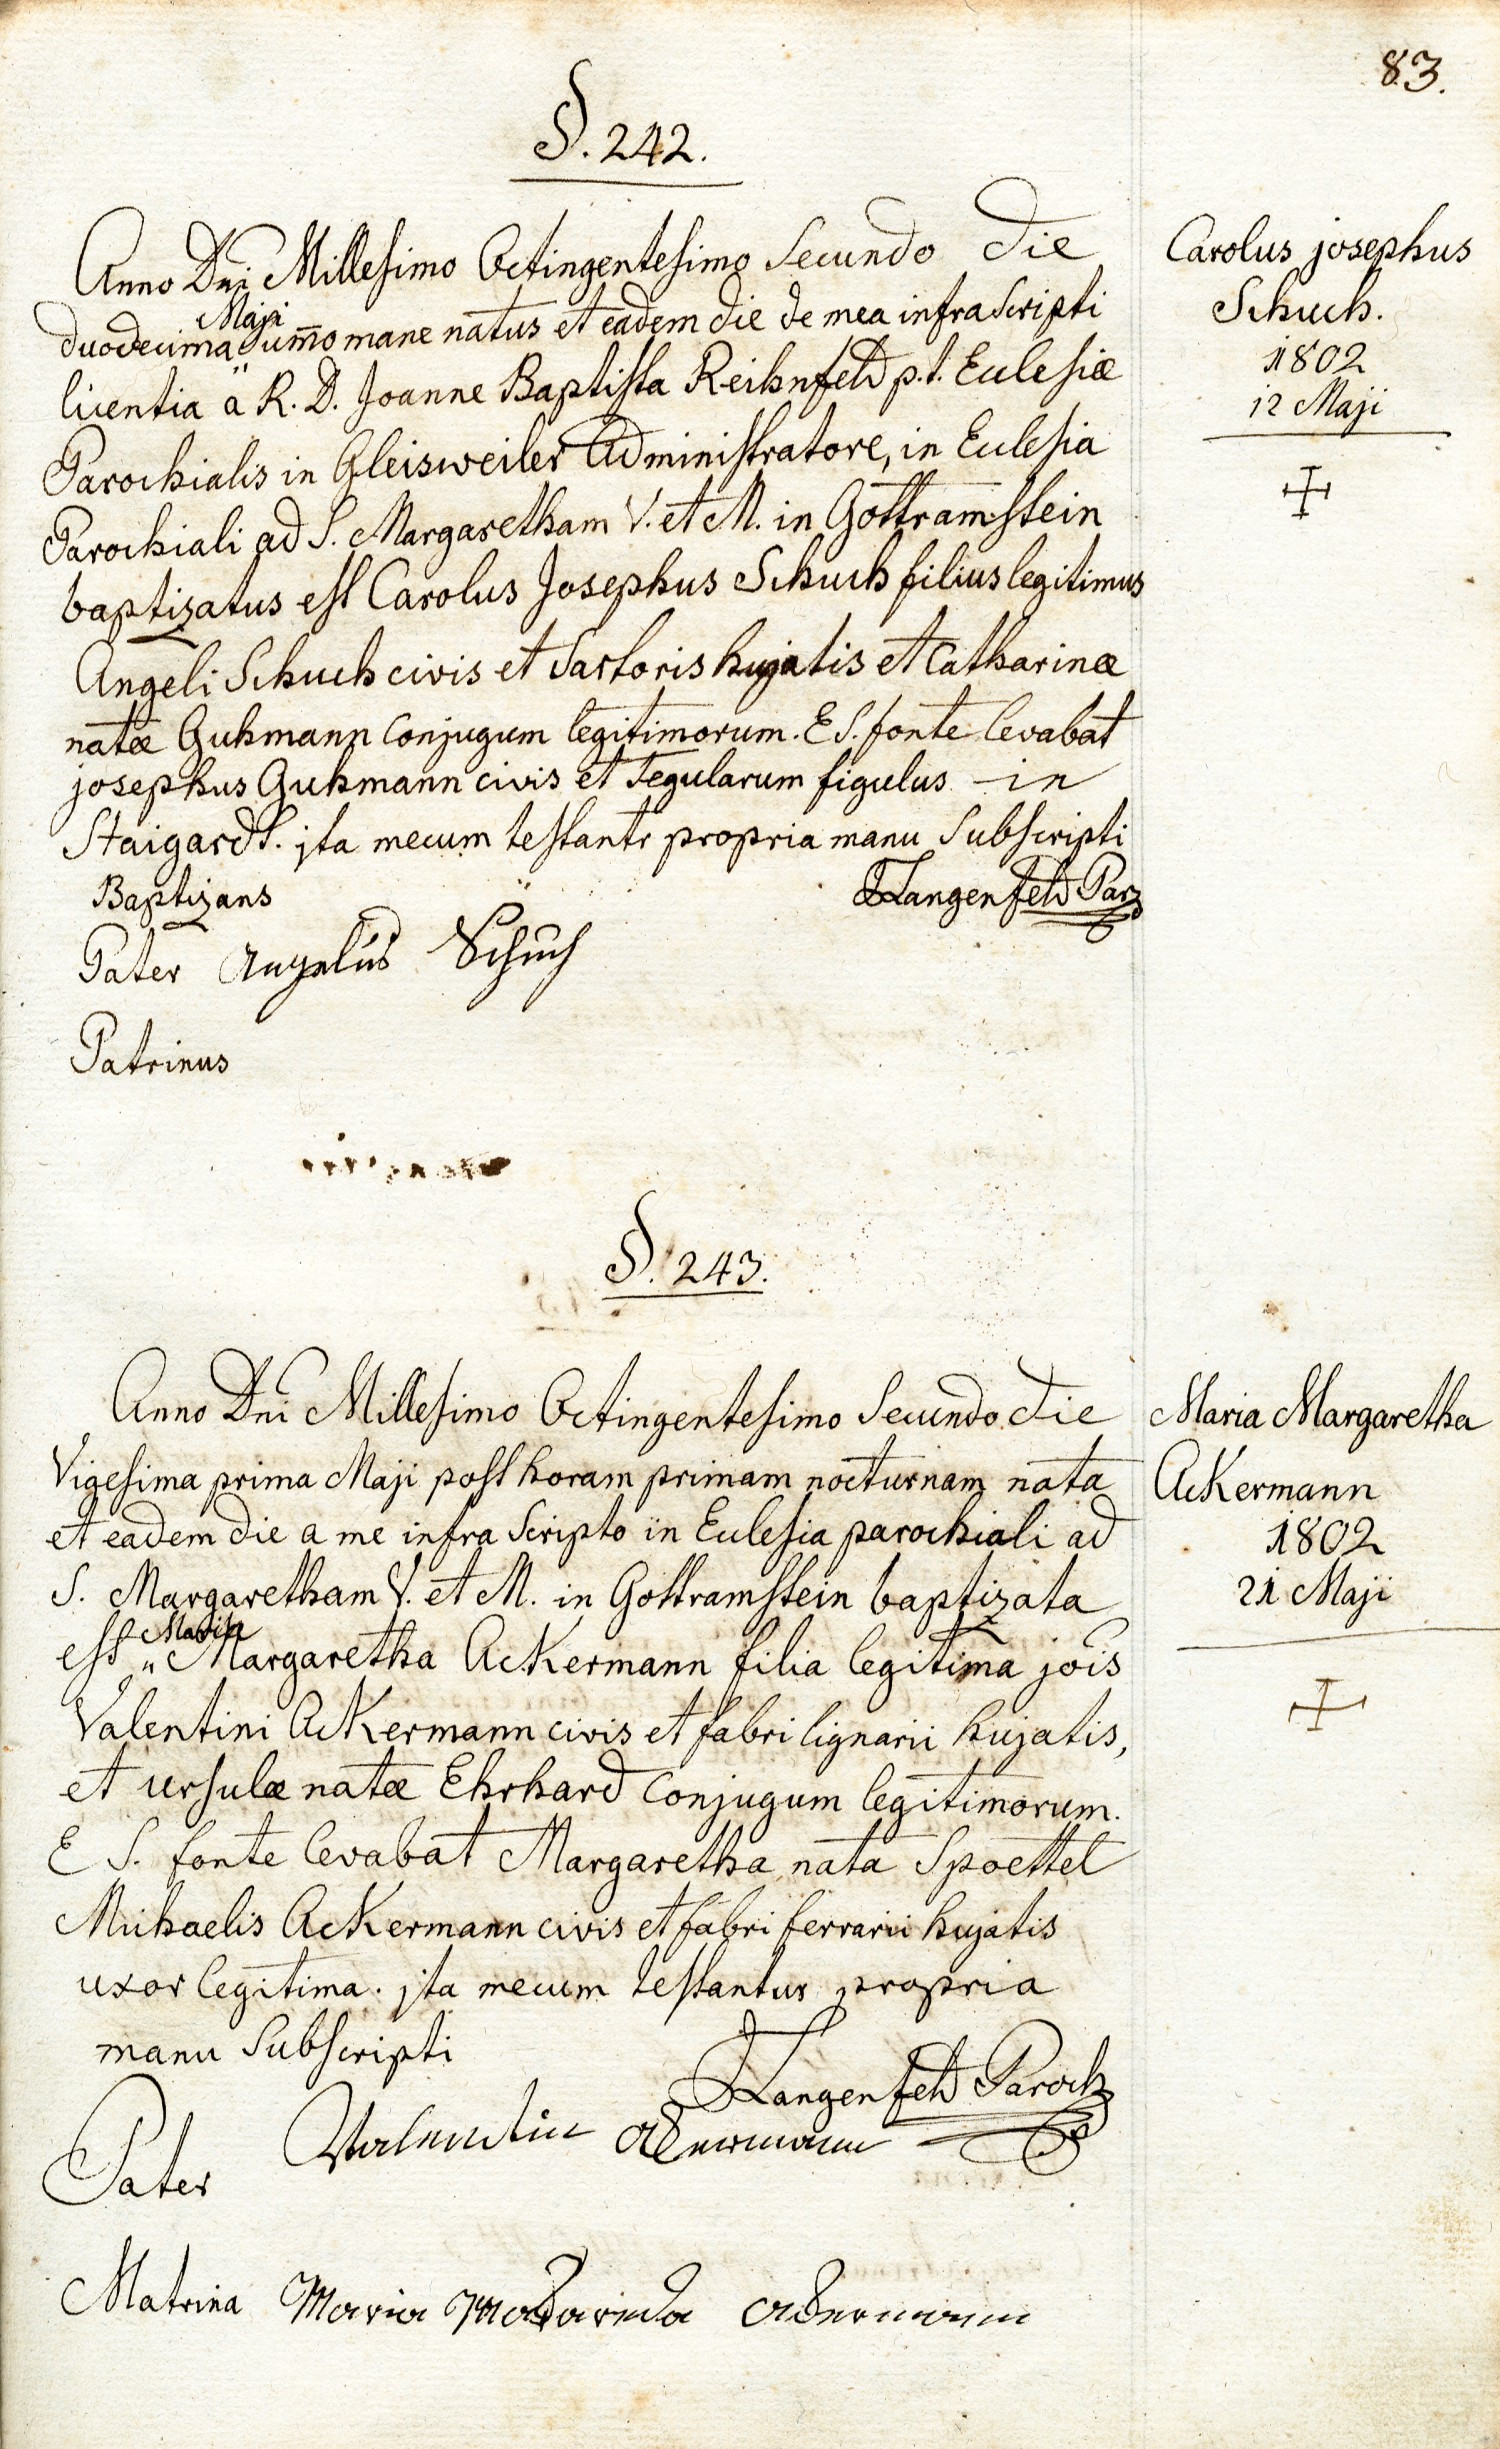 83.
§. 242.
Anno Dni Millesimo Octingentesimo Secundo die
Carolus josephus
Schuch.
1802
12 Maji
Maji
duodecima um̄o mane natus et eadem die de mea infrascripti
licentia a R. D. Joanne Baptista Reihnfeld p.t. Ecclesiæ
Parochialis in Gleisweiler Administratore, in Ecclesia
Parochiali ad S. Margaretham V. et M. in Gottramstein
baptizatus est Carolus Josephus Schuch filius legitimus
Angeli Schuch civis et Sartoris hujatis et Catharinæ
natæ Guhmann Conjugum legitimorum. E S. fonte levabat
josephus Guhmann civis et Tegularum figulus in
Staigardt. jta mecum testantr propria manu Subscripti
Baptizans Langenfeld Par
Pater Angelus Schuch
Patrinus
§. 243.
Anno Dni Millesimo Octingentesimo Secundo die
Maria Margaretha
Ackermann
1802
21 Maji
Vigesima prima Maji post horam primam nocturnam nata
et eadem die a me infra Scripto in Ecclesia parochiali ad
S. Margaretham V. et M. in Gottramstein baptizata
Maria
est „ Margaretha Ackermann filia legitima jois
Valentini Ackermann civis et fabri lignarii hujatis,
et ursulæ natæ Ehrhard Conjugum legitimorum.
E S. fonte levabat Margaretha nata Spoettel
Michaelis Ackermann civis et fabri ferrarii hujatis
uxor legitima. jta mecum testantur propria
manu Subscripti
Langenfeld Paroch
Pater Valentin Ackermann
Matrina Maria Ackermann